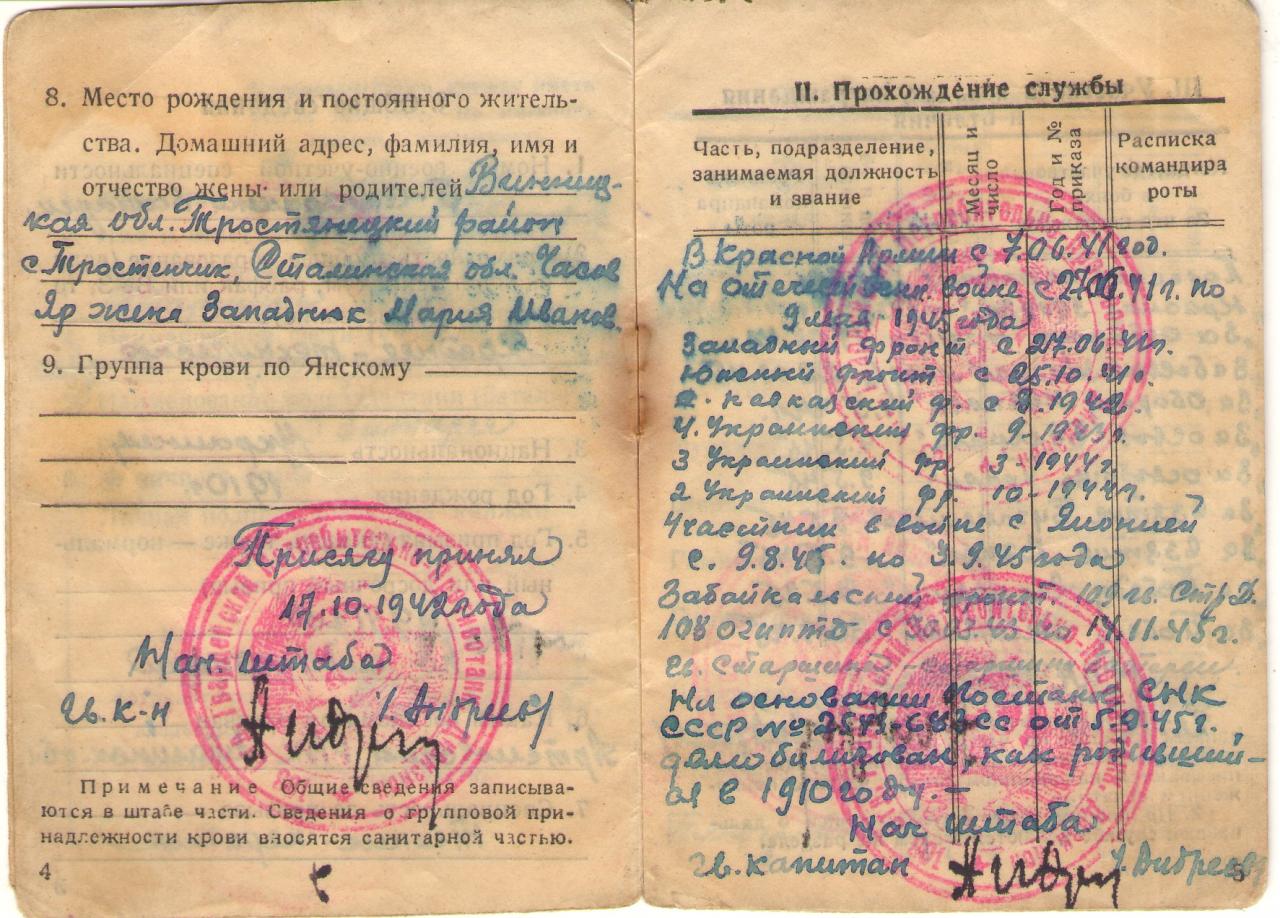 8. Место рождения и постоянного житель-
ства. Домашний адрес, фамилия, имя и
отчество жены или родителей Винниц-
кая обл. Тростянецкий район
с. Тростенчик, Сталинская обл. Часов
Яр жена Западнюк Мария Иванов.
9. Группа крови по Янскому
Присягу принял
17.10.1942 года
Нач. штаба
гв. к-н /. Андреев/
Примечание Общие сведения записыва-
ются в штабе части. Сведения о групповой при-
надлежности крови вносятся санитарной частью.
4
II. Прохождение службы
Часть, подразделение,
занимаемая должность
и звание
Месяц и
число
Год и №
приказа
Расписка
командира
роты
В Красной Армии с 7.06.41 год.
На отечествен. войне с 27.06.41г. по
9 мая 1945 года
Западный фронт с 27.06.41г.
Южный фронт с 25.10.41г.
кавказский ф. с 8.1942г.
4. Украинский фр. 9-1943г.
3 Украинский фр. 3-1944г.
2 Украинский фр. 10-1944г.
Участник в войне с Японией
с. 9.8.45. по 3.9.45 года
Забайкальский фронт. 109 гв. Стр. Д.
14.11.45г.
гв. Старшина
На основании Постанов. СНК
СССР № от 5.9.45г.
демобилизован, как родивший-
ся в 1910 году. —
Нач. штаба
гв. капитан /. Андреев/
5